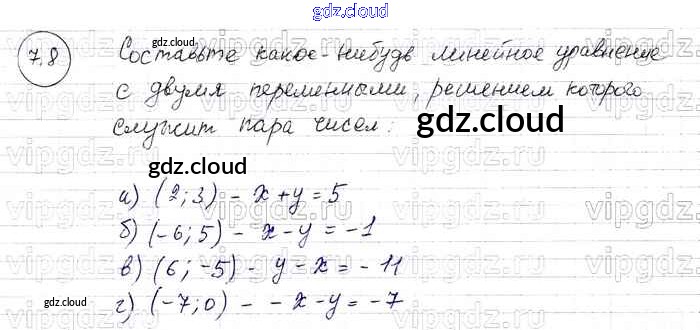 gdz.cloud
7.8 Составьте какое-нибудь линейное уравнение
gdz.cloud
с двумя переменными, решением которого
служит пара чисел: gdz.cloud
gdz.cloud
а) (2; 3) - x + y = 5
б) (-6; 5) - x - y = -1
в) (6; -5) - y - x = -11
gdz.cloud
г) (-7; 0) - - x - y = -7